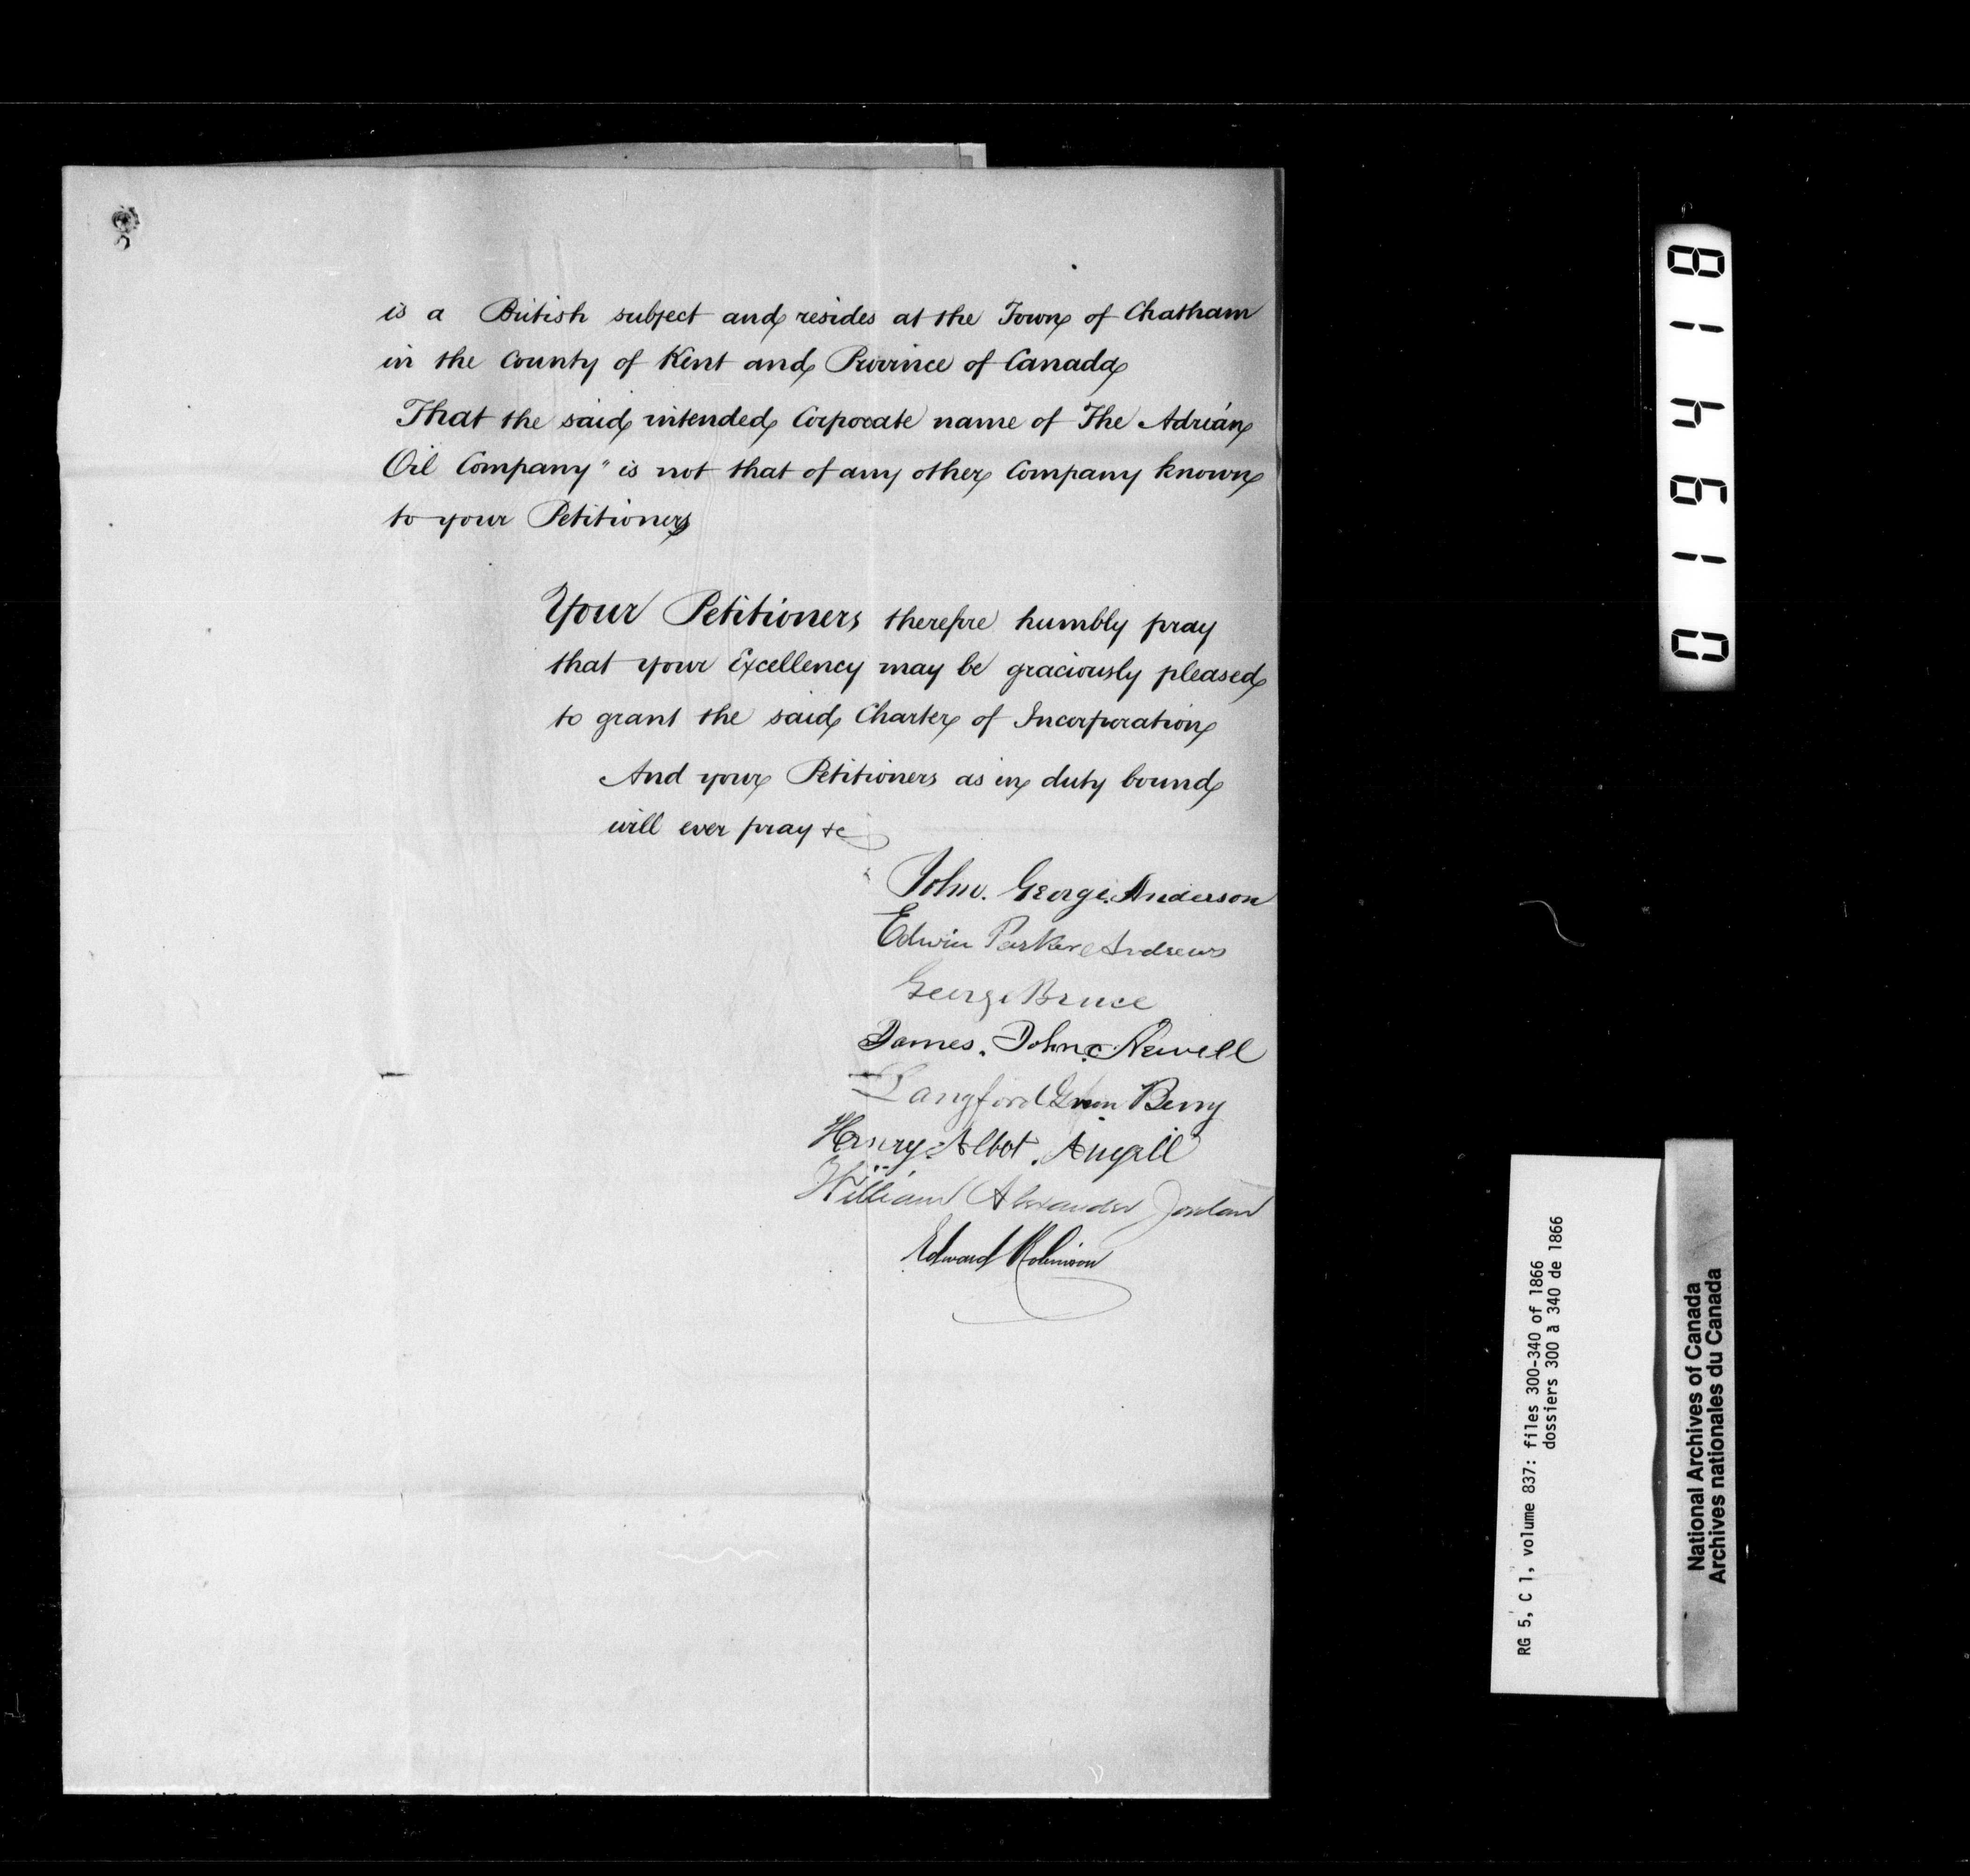 is a British subject and resides at the Town of Chatham
in the County of Kent and Province of Canada
That the said intended Corporate name of The Adrian
Oil Company" is not that of any other Company known
to your Petitioners
Your Petitioners therefore humbly pray
that your Excellency may be graciously pleased
to grant the said Charter of Incorporation
And your Petitioners as in duty bound
will ever pray &c
John. George. Anderson
Edwin Parker Andrews
George Bruce
James. John. Newell
Langford Berry
Henry
William Alexander Jordan
Edward Robinson
016418
RG 5, C 1, volume 837: files 300-340 of 1866
dossiers 300 à 340 de 1866
National Archives of Canada
Archives nationales du Canada